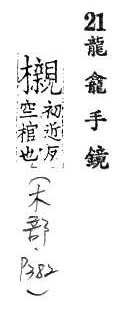 21龍龕手鏡
櫬初近反空棺也
(木部.P382)